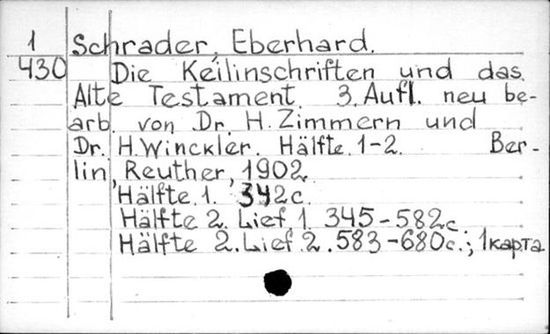 1 Schrader, Eberhard.
430 Die Keilinschriften und das
Alte Testament. 3. Aufl. neu be-
arb. von Dr. H. Zimmern und
Dr. H. Winckler. Hälfte 1-2. Ber-
lin, Reuther, 1902.
Hälfte 1. 342c.
Hälfte 2. Lief. 1. 345-582c.
Hälfte 2. Lief. 2. 583-680c.; 1 карта